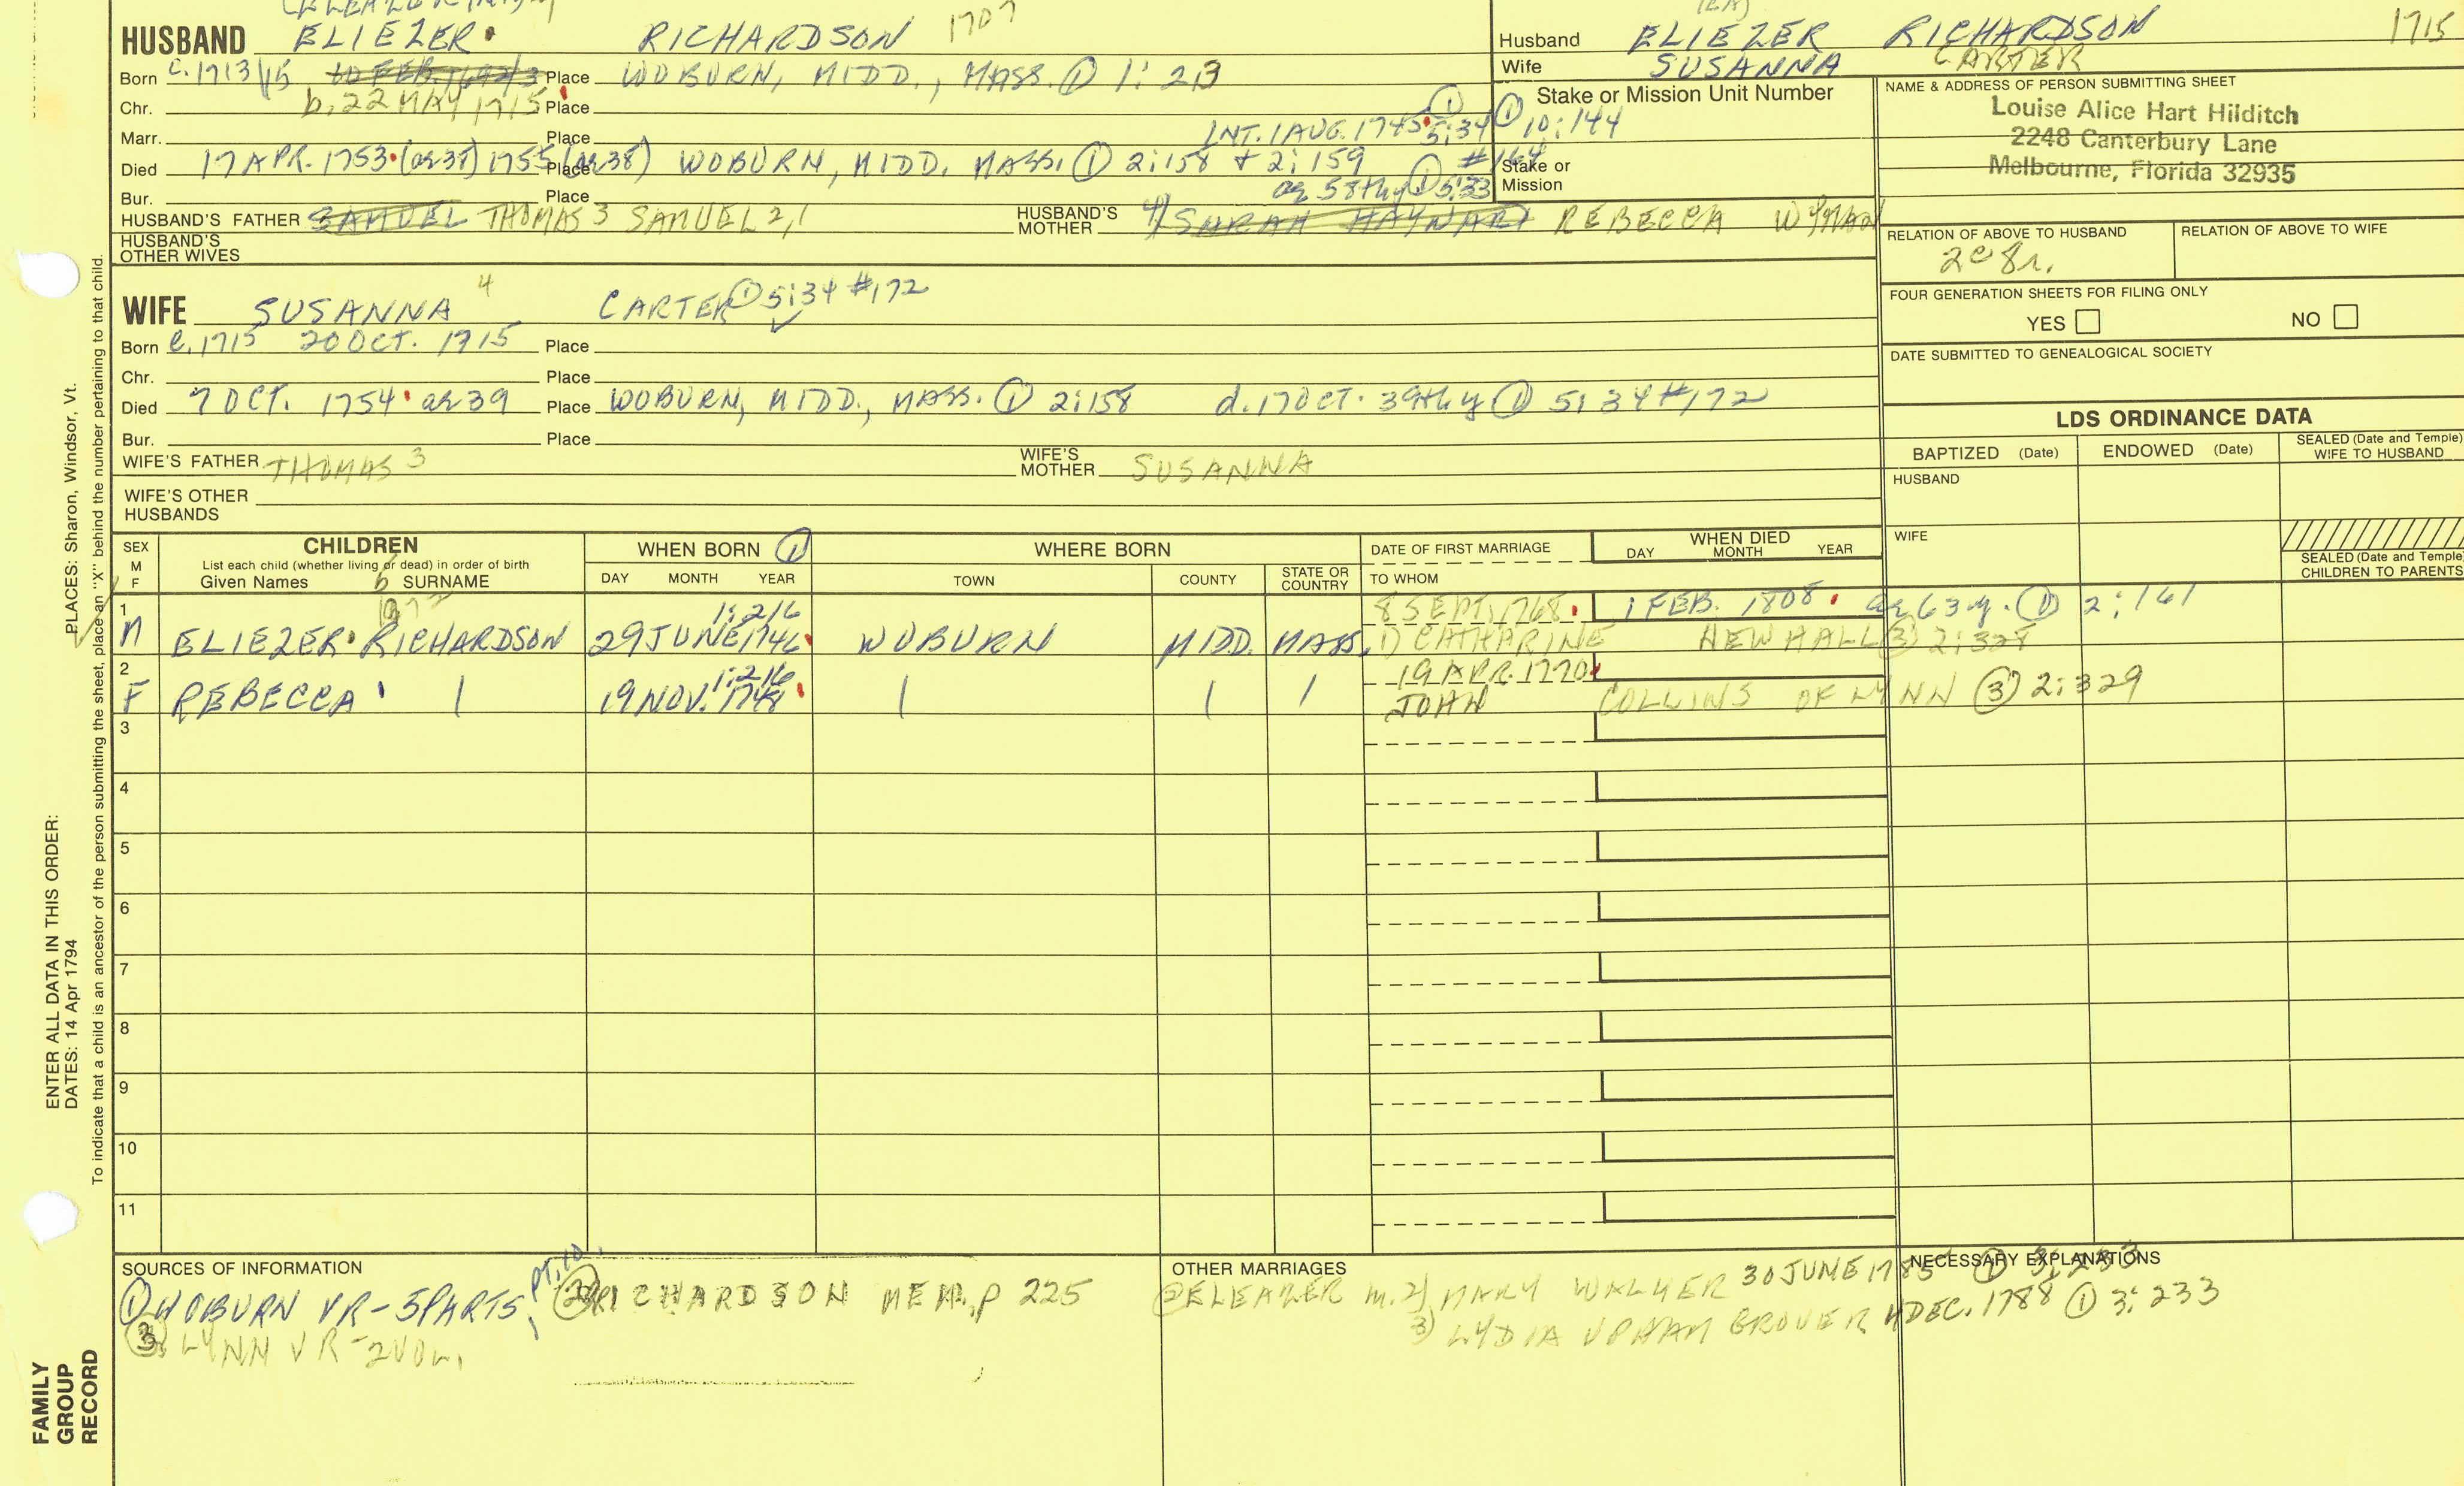 HUSBAND ELIEZER RICHARDSON 1707
Born c. 1713/15 10 FEB. 1692/3 Place WOBURN, MIDD., MASS. ① 1:213
Chr. b. 22 MAY 1715 Place
Marr. Place INT. 1 AUG. 1745 ① 5:34 ① 10:144
Died 17 APR. 1753 (ae 38) 1755 (ae 38) Place WOBURN, MIDD. MASS. ① 2:158 + 2:159 #164
Bur. Place ae 58thy ① 5:33
HUSBAND'S FATHER SAMUEL THOMAS 3 SAMUEL 2,1 HUSBAND'S MOTHER 4) SARAH HAYNARD REBECCA WYMAN
HUSBAND'S OTHER WIVES
Husband ELIEZER RICHARDSON 1715
Wife SUSANNA CARTER
Stake or Mission Unit Number
Stake or Mission
NAME & ADDRESS OF PERSON SUBMITTING SHEET
Louise Alice Hart Hilditch
2248 Canterbury Lane
Melbourne, Florida 32935
RELATION OF ABOVE TO HUSBAND RELATION OF ABOVE TO WIFE
2c 8r.
FOUR GENERATION SHEETS FOR FILING ONLY
YES NO
DATE SUBMITTED TO GENEALOGICAL SOCIETY
WIFE SUSANNA 4 CARTER ① 5:34 #172
Born c. 1715 20 OCT. 1715 Place
Chr. Place
Died 7 OCT. 1754 ae 39 Place WOBURN, MIDD., MASS. ① 2:158 d. 17 OCT. 39thy ① 5:34 #172
Bur. Place
WIFE'S FATHER THOMAS 3 WIFE'S MOTHER SUSANNA
WIFE'S OTHER HUSBANDS
LDS ORDINANCE DATA
BAPTIZED (Date) ENDOWED (Date) SEALED (Date and Temple) WIFE TO HUSBAND
HUSBAND
WIFE
SEALED (Date and Temple) CHILDREN TO PARENTS
SEX M F
CHILDREN
List each child (whether living or dead) in order of birth
Given Names SURNAME
WHEN BORN ①
DAY MONTH YEAR
WHERE BORN
TOWN COUNTY STATE OR COUNTRY
DATE OF FIRST MARRIAGE
TO WHOM
WHEN DIED
DAY MONTH YEAR
1 1:216 8 SEPT. 1768 1 FEB. 1808 ae 63 y. ① 2:161
M ELIEZER RICHARDSON 29 JUNE 1746 WOBURN MIDD. MASS. 1) CATHARINE NEWHALL ③ 2:328
2 1:216 19 APR. 1770
F REBECCA 19 NOV. 1748 JOHN COLLINS OF LYNN ③ 2:329
3
4
5
6
7
8
9
10
11
SOURCES OF INFORMATION
① WOBURN VR-5PARTS, ② RICHARDSON MEM, P 225
③ LYNN VR-2VOL.
OTHER MARRIAGES
ELEAZER m. 2) MARY WALKER 30 JUNE 1785 ① 3:233
3) LYDIA UPHAM GROVER 4 DEC. 1788 ① 3:233
NECESSARY EXPLANATIONS
PLACES: Sharon, Windsor, Vt.
To indicate that a child is an ancestor of the person submitting the sheet, place an "X" behind the number pertaining to that child.
ENTER ALL DATA IN THIS ORDER:
DATES: 14 Apr 1794
FAMILY GROUP RECORD